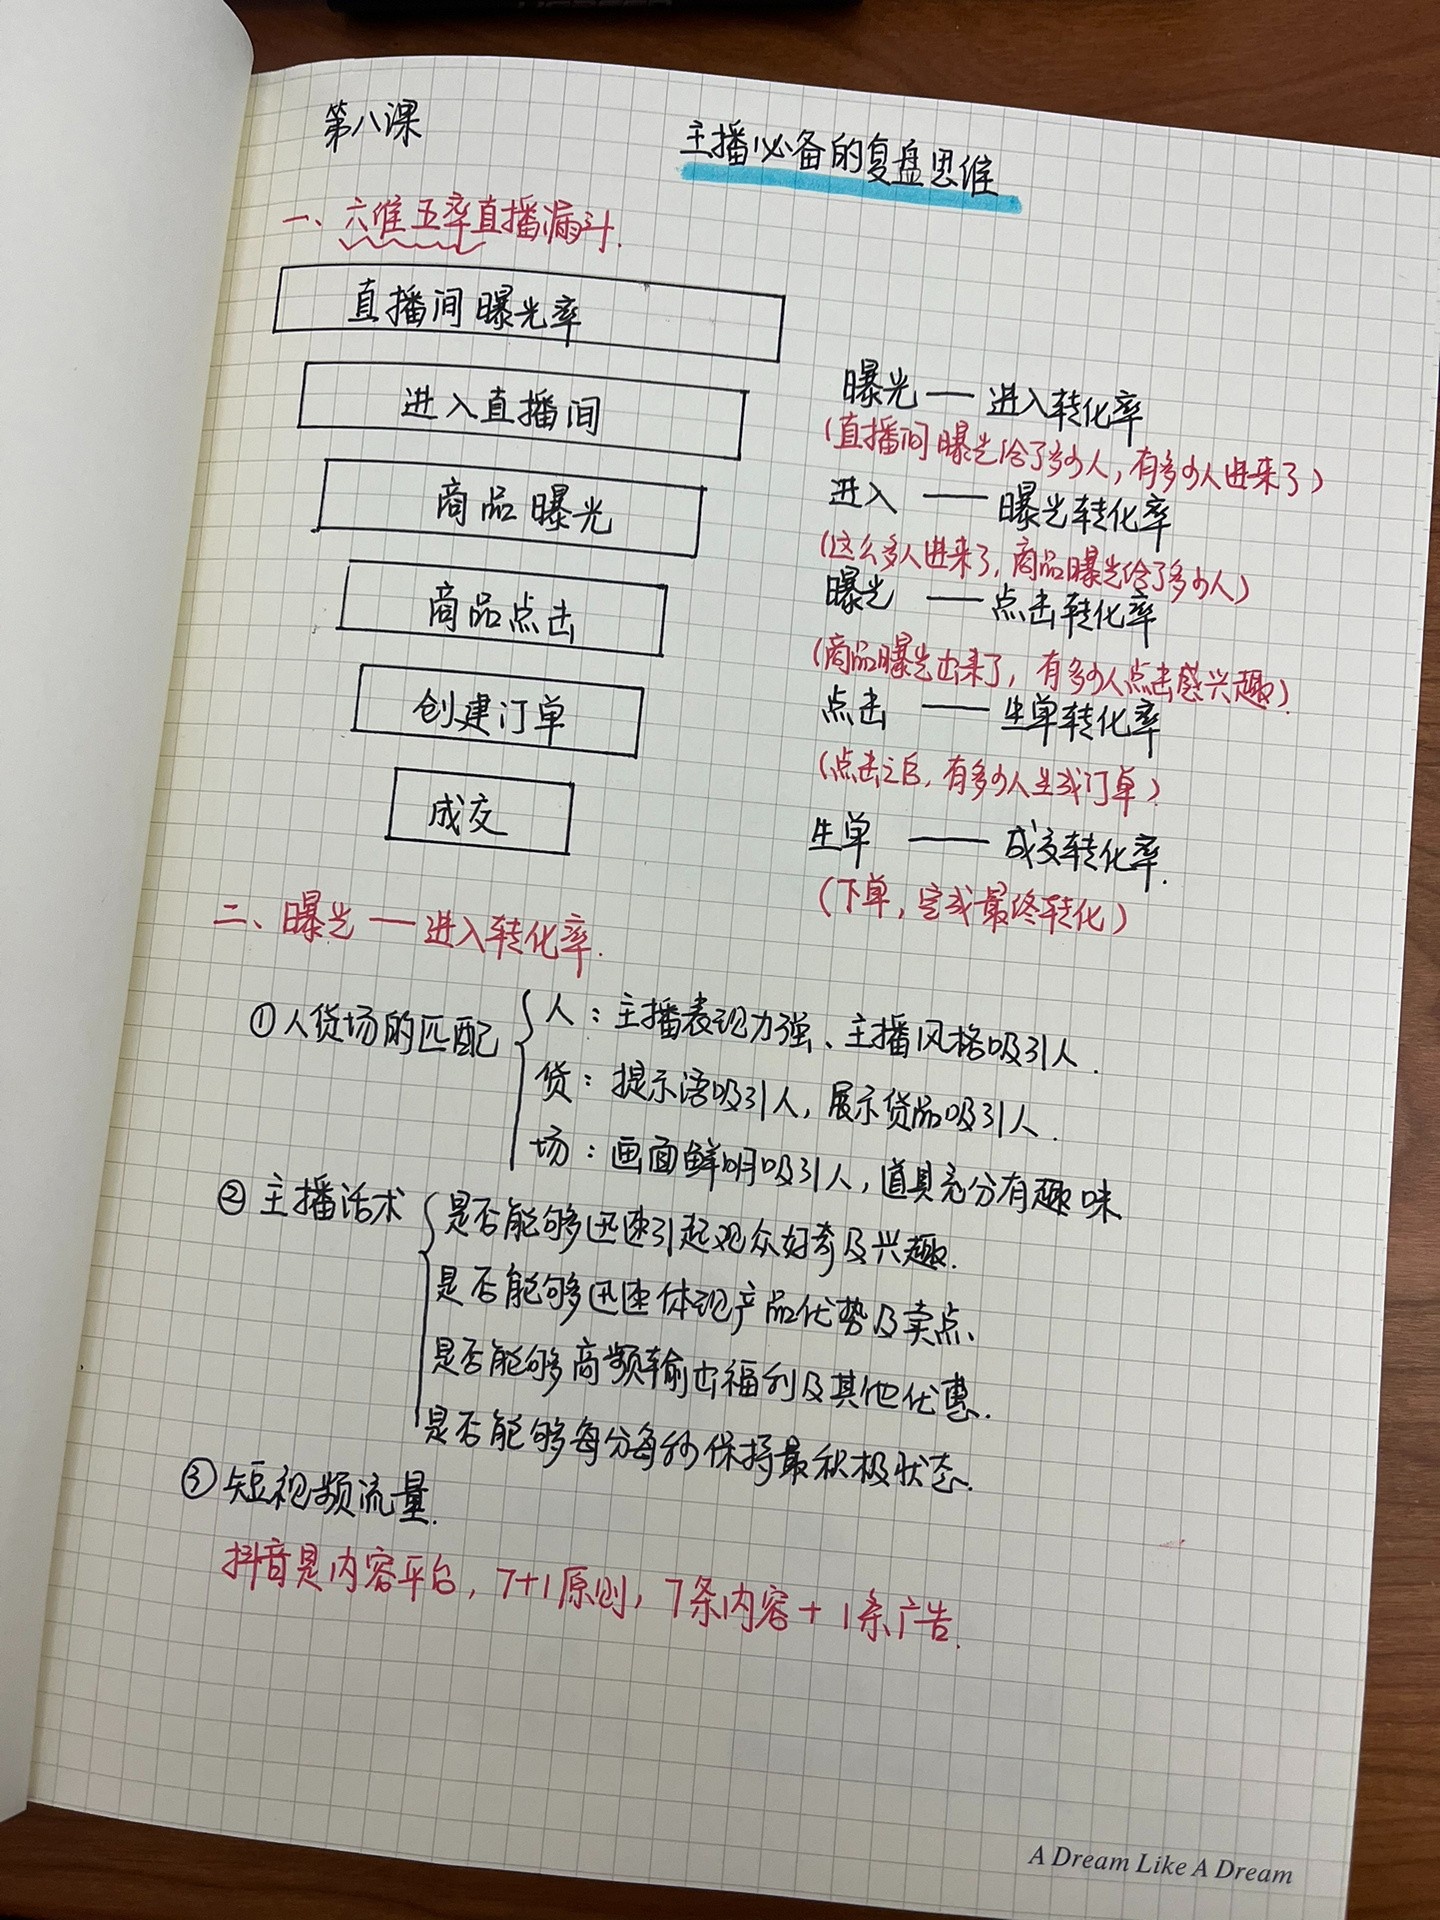 第八课
主播必备的复盘思维
一、六维五率直播漏斗.
直播间曝光率
进入直播间
商品曝光
商品点击
创建订单
成交
曝光——进入转化率
(直播间曝光给了多少人,有多少人进来了)
进入——曝光转化率
(这么多人进来了,商品曝光给了多少人)
曝光——点击转化率
(商品曝光出来了,有多少人点击感兴趣)
点击——生单转化率
(点击之后,有多少人生成订单)
生单——成交转化率.
(下单,完成最终转化)
二、曝光——进入转化率.
①人货场的匹配
人:主播表现力强、主播风格吸引人.
货:提示语吸引人,展示货品吸引人.
场:画面鲜明吸引人,道具充分有趣味
②主播话术
是否能够迅速引起观众好奇及兴趣.
是否能够迅速体现产品优势及卖点、
是否能够高频输出福利及其他优惠.
是否能够每分每秒保持最积极状态.
③短视频流量.
抖音是内容平台,7+1原则,7条内容+1条广告.
A Dream Like A Dream